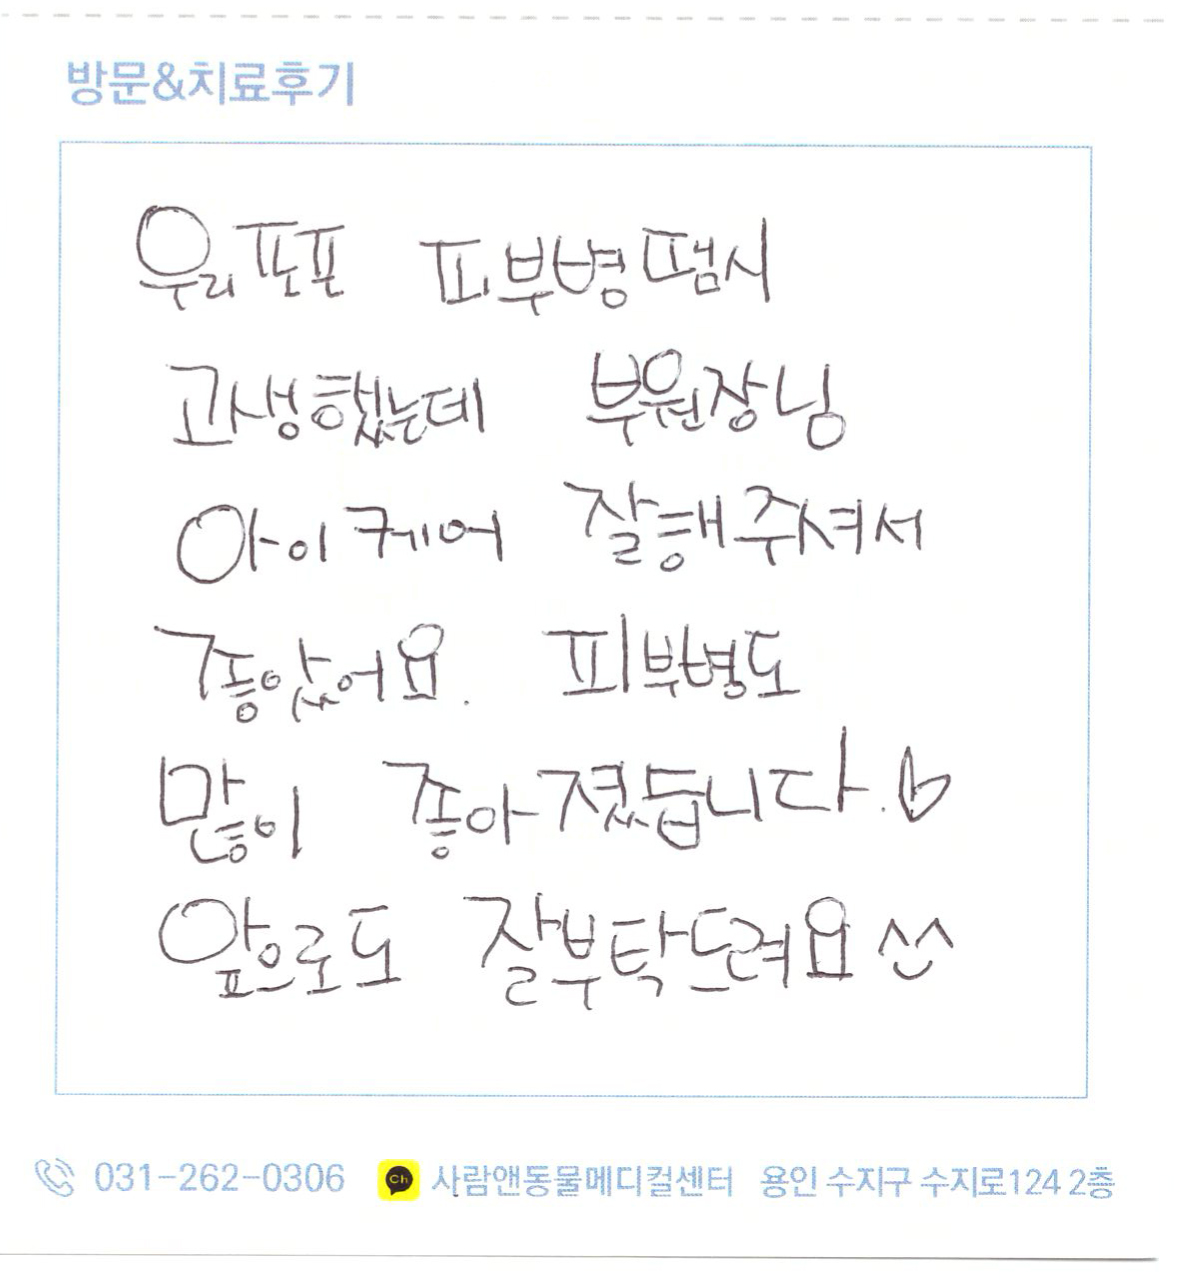 방문&치료후기
우리포포 피부병땜시
고생했는데 부원장님
아이케어 잘해주셔서
좋았어요. 피부병도
많이 좋아졌습니다.♡
앞으로도 잘부탁드려요 ^^
031-262-0306 Ch 사람앤동물메디컬센터 용인 수지구 수지로124 2층